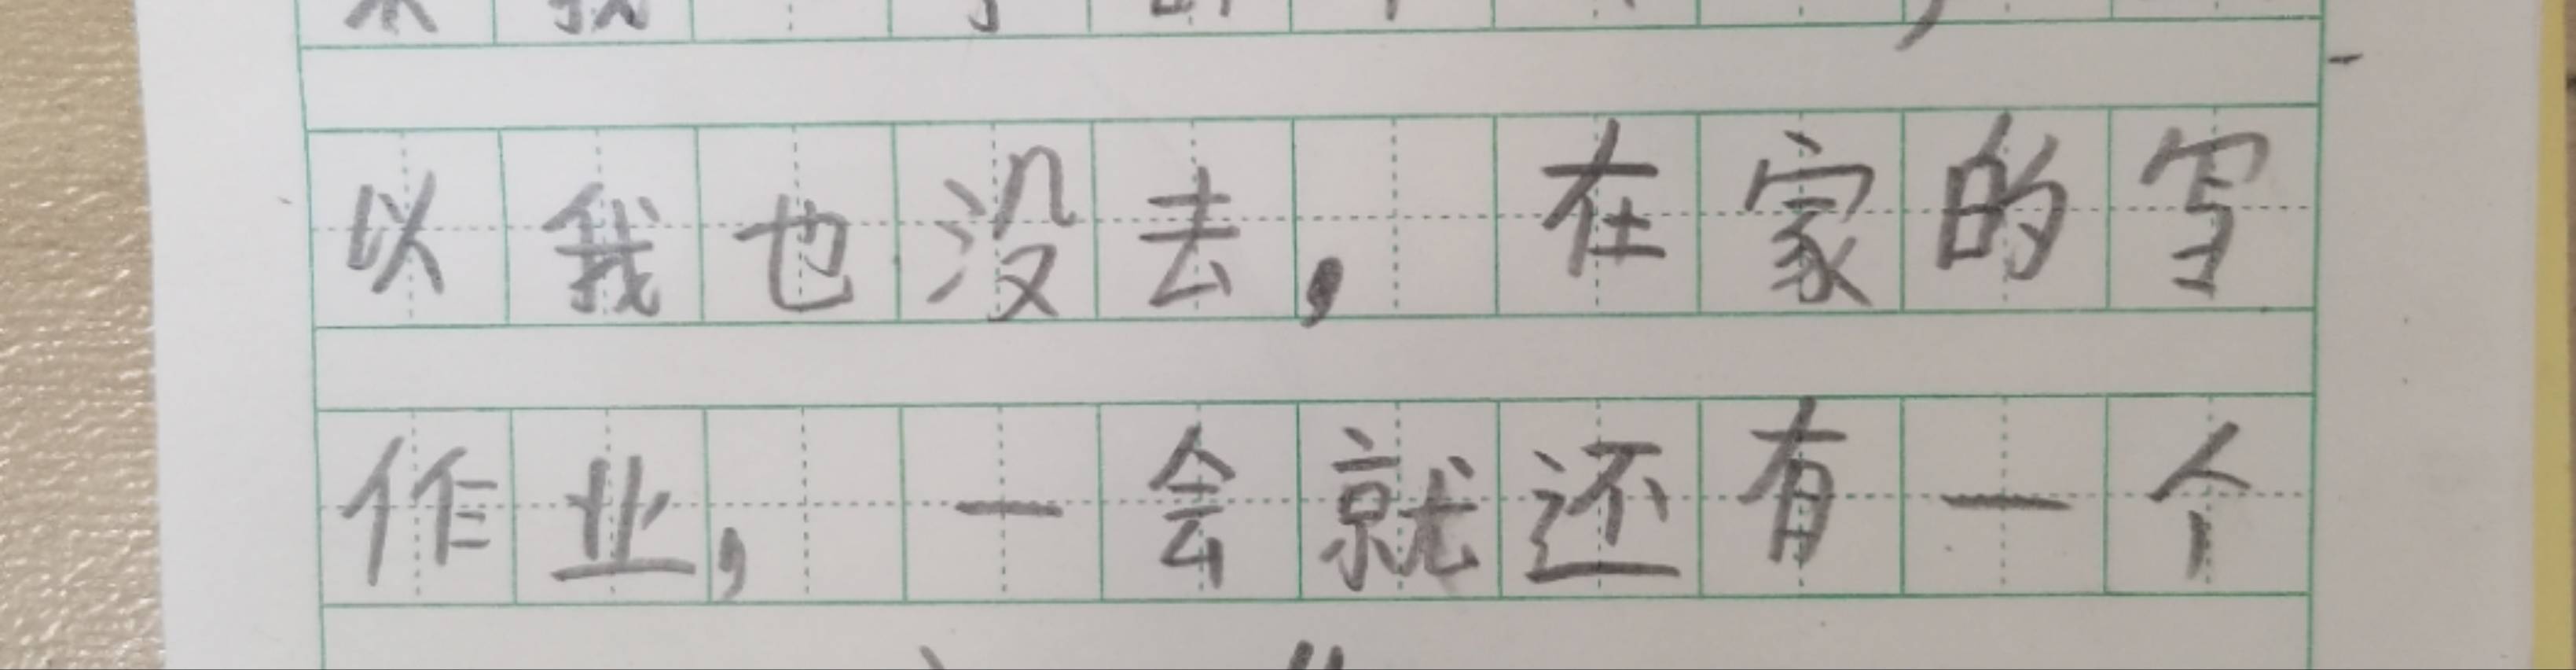 以我也没去，在家的写
作业，一会就还有一个